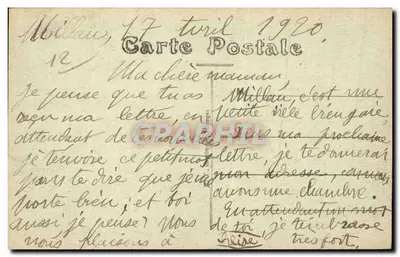 Millau, 17 Avril 1920.
Carte Postale
12/
Ma chère maman,
Je pense que tu as
reçu ma lettre, en
attendant de
je t'envoie ce petit mot
pour te dire que je me
porte bien, et toi
aussi je pense? Nous
nous plaisons à
Millau, c'est une
petite ville bien gaie,
Dans ma prochaine
lettre, je te donnerai
mon adresse, car nous
aurons une chambre.
En attendant un mot
de toi, je t'embrasse
très fort.